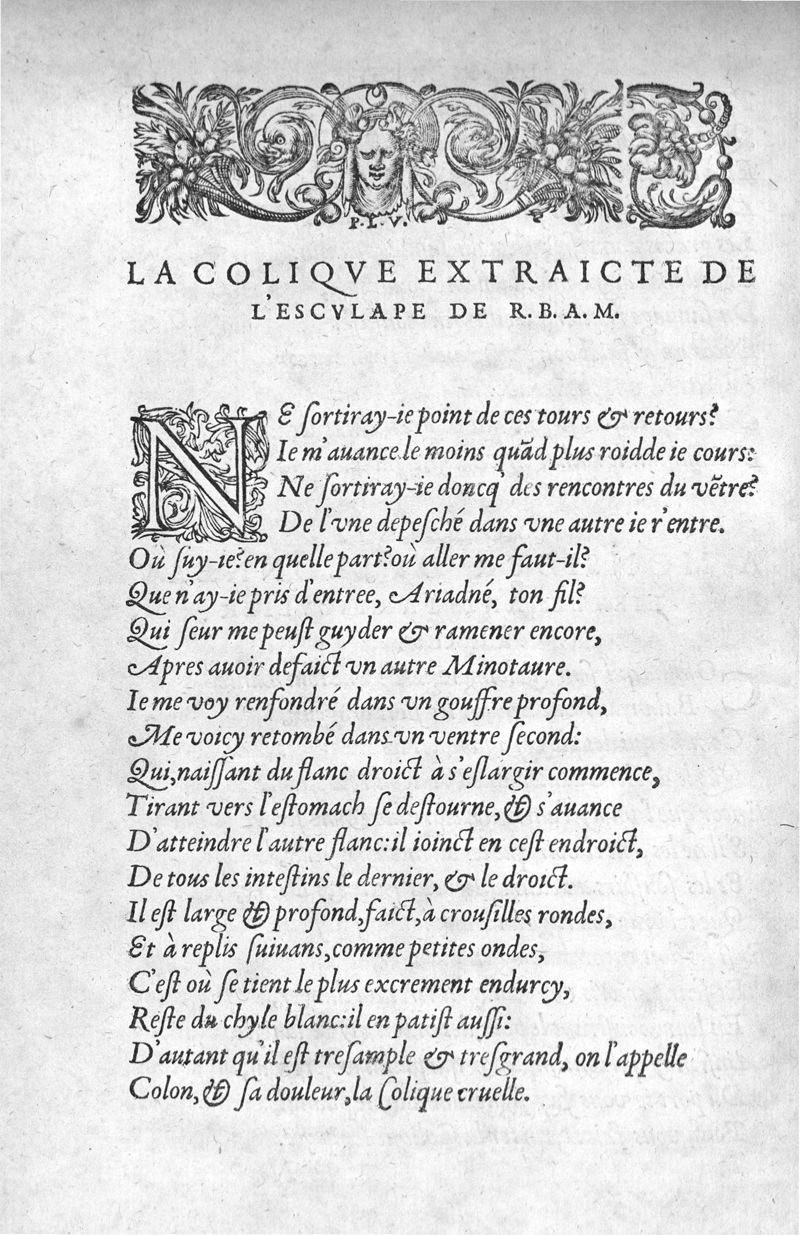 P. L. V.
LA COLIQVE EXTRAICTE DE
L'ESCVLAPE DE R. B. A. M.
NE ſortiray-ie point de ces tours & retours?
Ie m'auance le moins quãd plus roidde ie cours:
Ne ſortiray-ie doncq' des rencontres du vẽtre?
De l'vne depeſché dans vne autre ie r'entre.
Où ſuy-ie? en quelle part? où aller me faut-il?
Que n'ay-ie pris d'entree, Ariadné, ton fil?
Qui ſeur me peuſt guyder & ramener encore,
Apres auoir defaict vn autre Minotaure.
Ie me voy renfondré dans vn gouffre profond,
Me voicy retombé dans vn ventre ſecond:
Qui, naiſſant du flanc droict à s'eſlargir commence,
Tirant vers l'eſtomach ſe deſtourne, & s'auance
D'atteindre l'autre flanc: il ioinct en ceſt endroict,
De tous les inteſtins le dernier, & le droict.
Il eſt large & profond, faict, à crouſilles rondes,
Et à replis ſuiuans, comme petites ondes,
C'eſt où ſe tient le plus excrement endurcy,
Reſte du chyle blanc: il en patiſt auſſi:
D'autant qu'il eſt treſample & treſgrand, on l'appelle
Colon, & ſa douleur, la Colique cruelle.